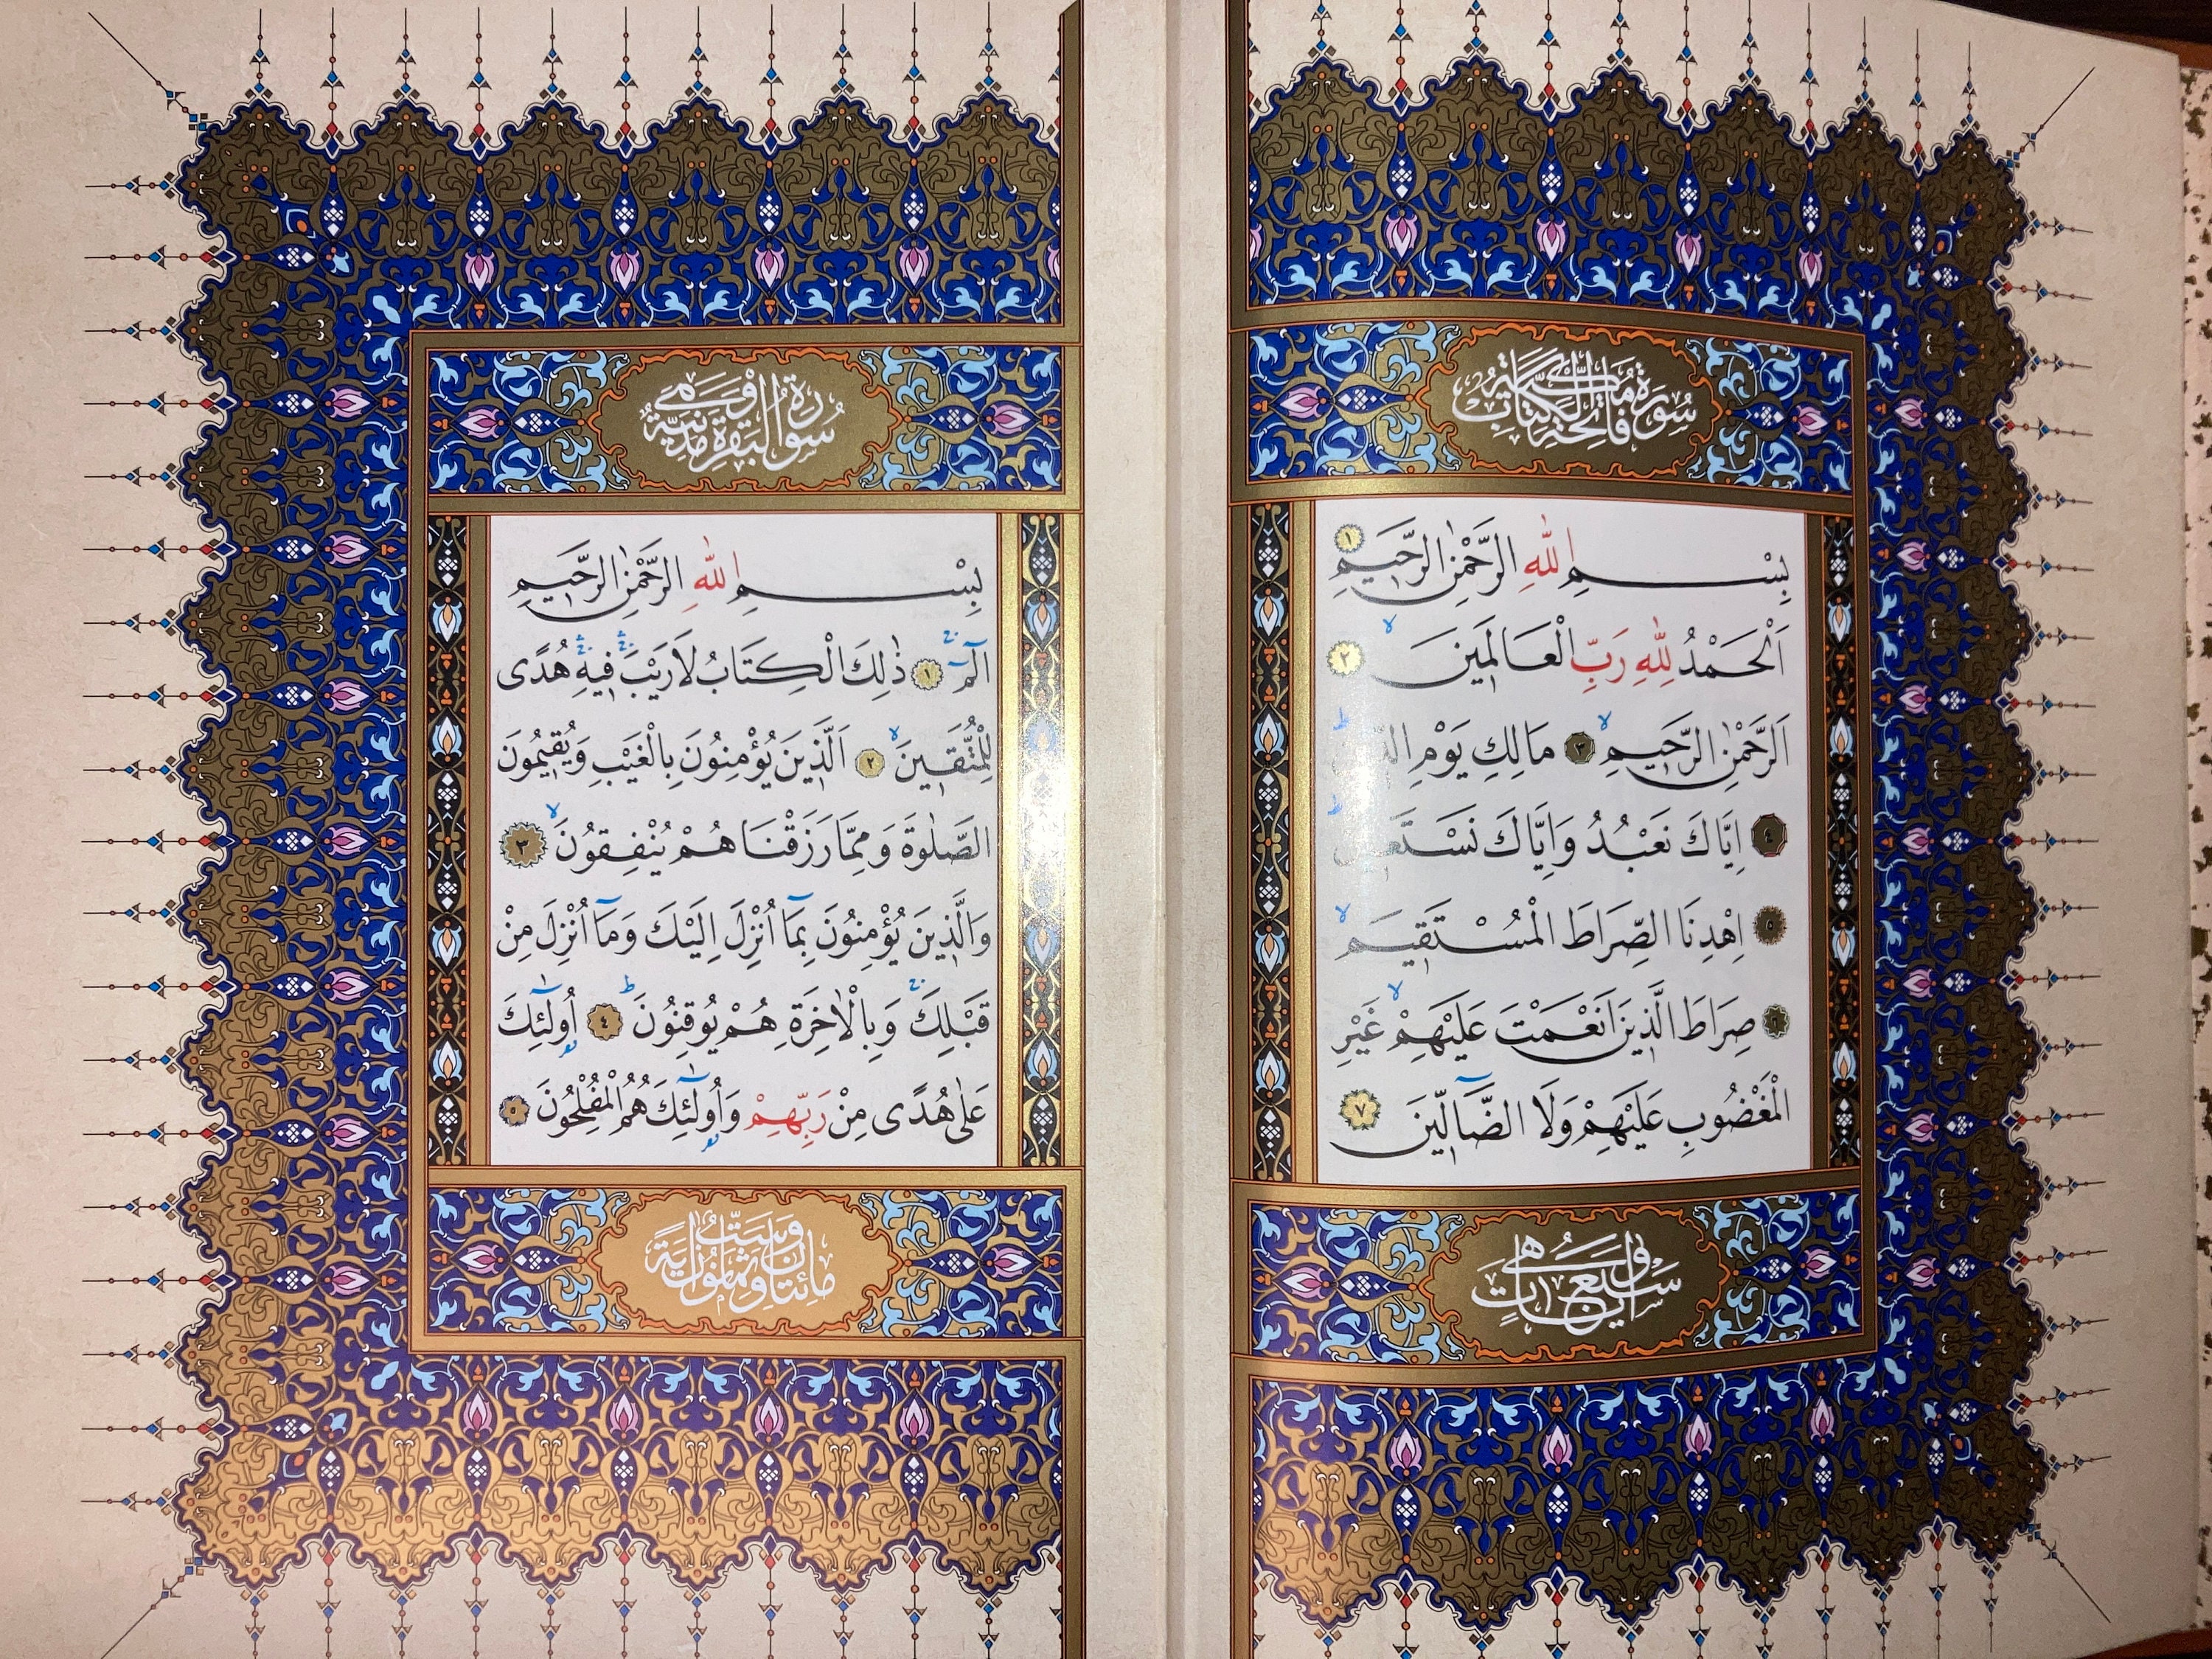 سُورَةُ فَاتِحَةِ الْكِتَابِ مَكِّيَّةٌ
بِسْمِ اللّٰهِ الرَّحْمٰنِ الرَّحِيمِ ١
اَلْحَمْدُ لِلّٰهِ رَبِّ الْعَالَمِينَۙ ٢
اَلرَّحْمٰنِ الرَّحِيمِۙ ٣ مَالِكِ يَوْمِ
٤ اِيَّاكَ نَعْبُدُ وَاِيَّاكَ
٥ اِهْدِنَا الصِّرَاطَ الْمُسْتَقِيمَۙ
٦ صِرَاطَ الَّذِينَ اَنْعَمْتَ عَلَيْهِمْۙ غَيْرِ
الْمَغْضُوبِ عَلَيْهِمْ وَلَا الضَّٓالِّينَ ٧
وَهِيَ سَبْعُ اٰيَاتٍ
سُورَةُ الْبَقَرَةِ وَهِيَ مَدَنِيَّةٌ
بِسْمِ اللّٰهِ الرَّحْمٰنِ الرَّحِيمِ
الٓمٓۚ ١ ذٰلِكَ الْكِتَابُ لَا رَيْبَۚۛ فِيهِۚۛ هُدًى
لِلْمُتَّقِينَۙ ٢ اَلَّذِينَ يُؤْمِنُونَ بِالْغَيْبِ وَيُقِيمُونَ
الصَّلٰوةَ وَمِمَّا رَزَقْنَاهُمْ يُنْفِقُونَۙ ٣
وَالَّذِينَ يُؤْمِنُونَ بِمَٓا اُنْزِلَ اِلَيْكَ وَمَٓا اُنْزِلَ مِنْ
قَبْلِكَۚ وَبِالْاٰخِرَةِ هُمْ يُوقِنُونَۜ ٤ اُو۬لٰٓئِكَ
عَلٰى هُدًى مِنْ رَبِّهِمْ وَاُو۬لٰٓئِكَ هُمُ الْمُفْلِحُونَ ٥
مِائَتَانِ وَسِتٌّ وَثَمَانُونَ اٰيَةً